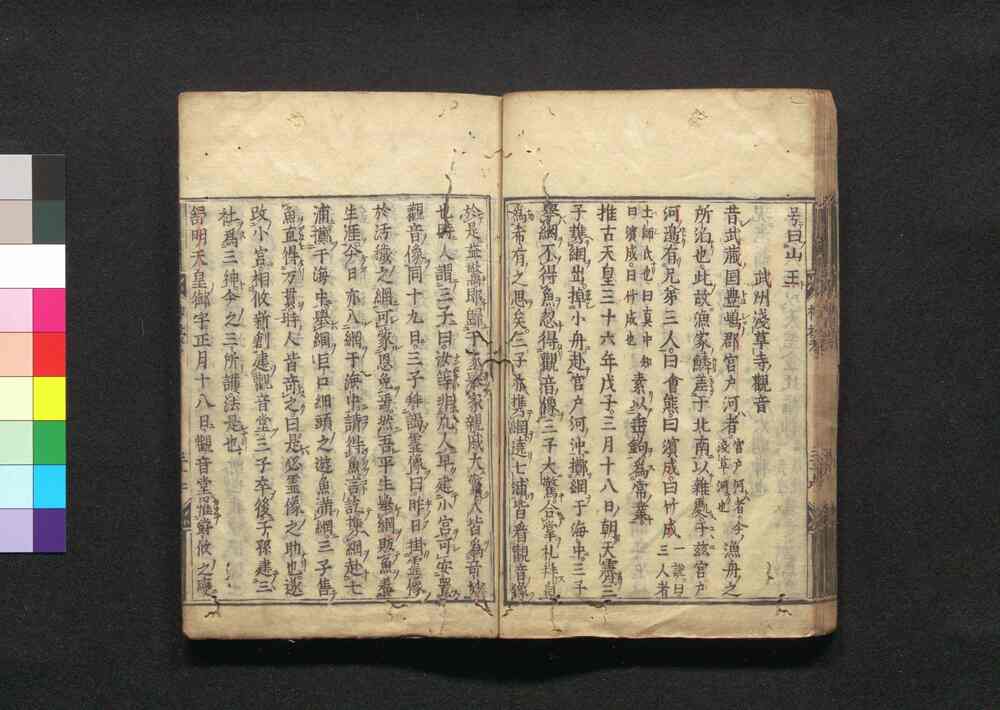 号曰山王
武州淺草寺觀音
昔武藏国豊嶋郡官戸河者官戸河者今淺草河也漁舟之
所泊也此故漁家鱗差于北南以雜處于兹官戸
河邉有兄弟三人曰會熊曰濱成曰竹成一説曰三人者
土師氏也曰真中知曰濱成曰竹成也素以垂釣爲常業
推古天皇三十六年戊子三月十八日朝天霽三
子携網出掉小舟赴官戸河沖擲網于海中三子
擧網不得魚忽得觀音像三子大驚合掌礼拝
爲希有之思矣三子亦携網遶七浦皆看觀音像
於是益驚即歸于家親戚大驚人皆爲奇妙
也時人謂三子曰汝等非凡人早建小宮可安置
觀音像同十九日三子稱謁霊像曰昨日掛霊像
於汚穢之網可蒙恩免焉然吾平生擧網販魚
生涯今日亦入網于海中請得魚言訖携網赴七
浦擲于海中擧網巨口細頭之遊魚満網三子售
魚直得万貫時人皆奇之曰是必霊像之助也遂
改小宮相攸新創建觀音堂三子卒後子孫建三
社爲三神今之三所護法是也
舒明天皇御宇正月十八日觀音堂罹欝攸之